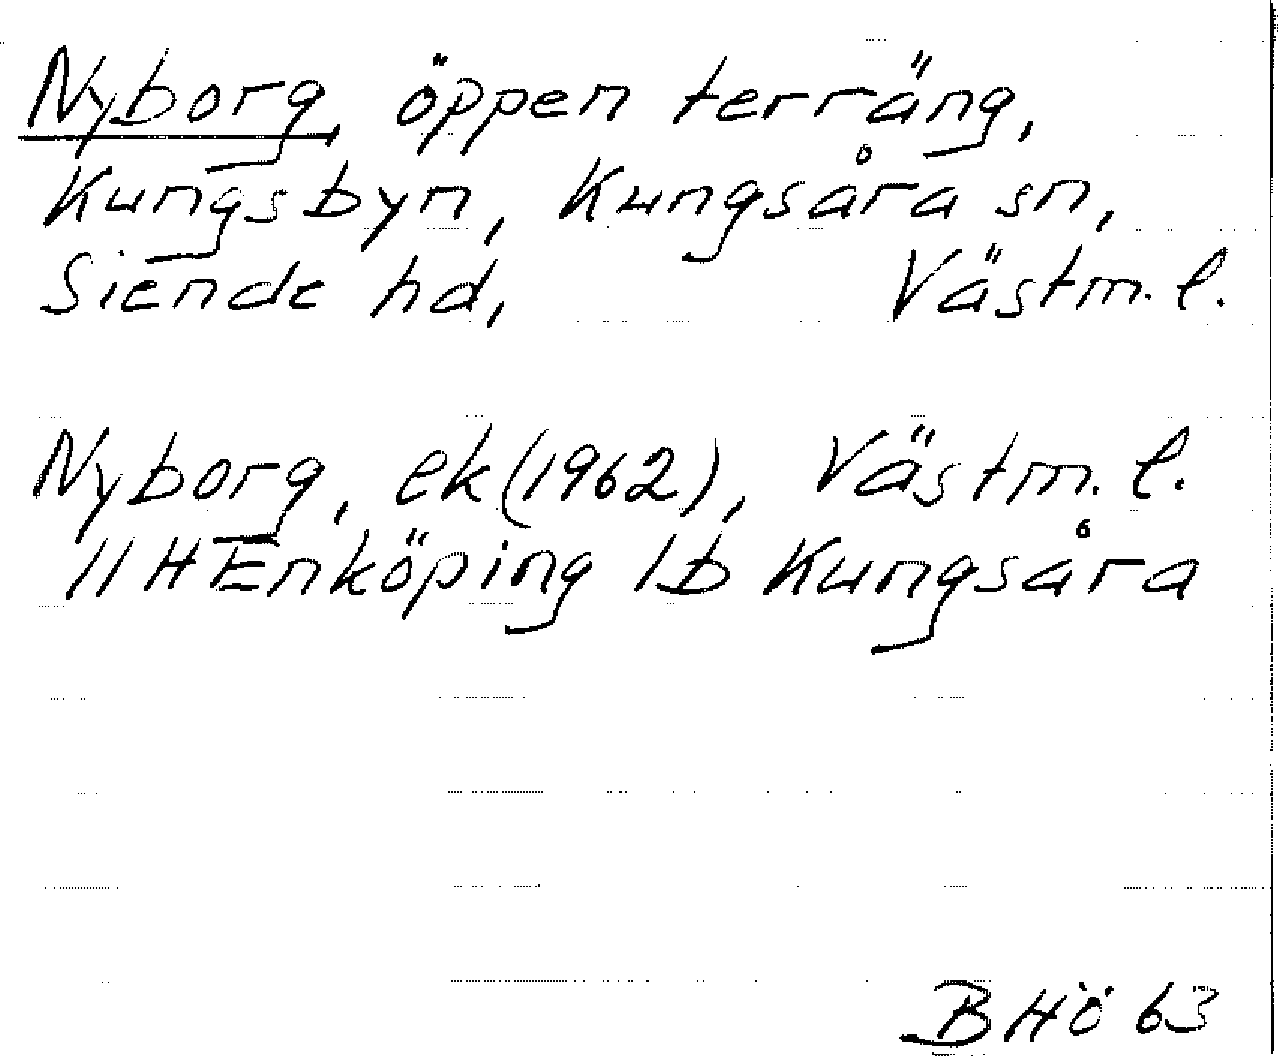 Nyborg, öppen terräng,
Kungsbyn, Kungsåra sn,
Siende hd, Västm. l.
Nyborg, ek (1962), Västm. l.
11 H Enköping 1b Kungsåra
BHÖ 63